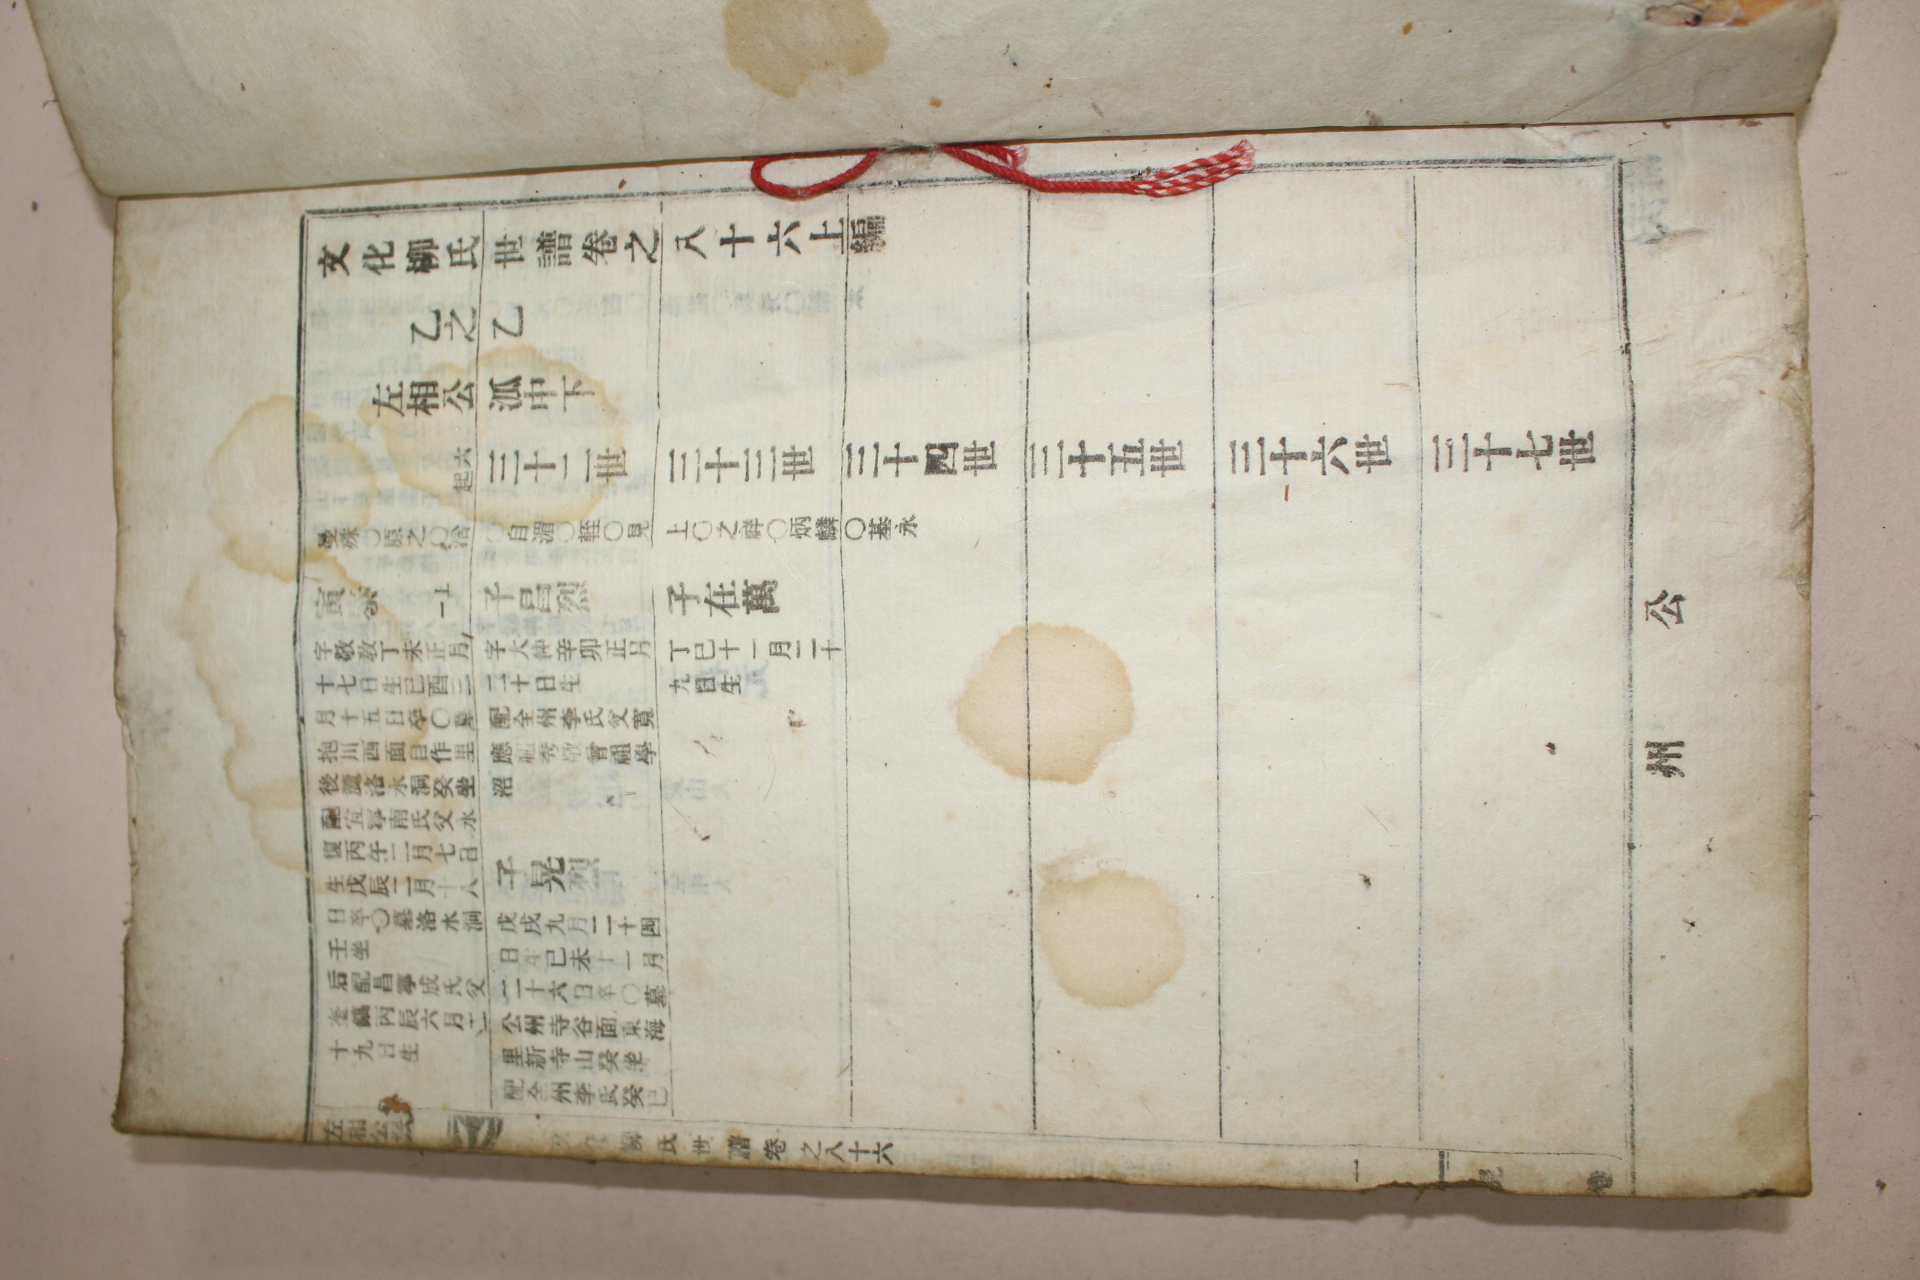 文化柳氏世譜卷之八十六上編
乙之乙
左相公派中下
起六
三十二世
三十三世
三十四世
三十五世
三十六世
三十七世
曼殊〇原之〇洽〇自湄〇輊〇見上〇之祥〇炳麟〇基永
寅
字敬敎丁未正月
十七日生己酉三
月十五日卒〇墓
抱川西面自作里
後麓洛水洞癸坐
配宜寧南氏父永
復丙午二月七日
生戊辰二月十八
日卒〇墓洛水洞
壬坐
后配昌寧成氏父
丙辰六月二
十九日生
子昌烈
字大仲辛卯正月
二十日生
配全州李氏父寬
應 秀 曾祖學
沼
子晃烈
戊戌九月二十四
日生己未十一月
二十六日卒〇墓
公州寺谷面東海
里新寺山癸坐
配全州李氏癸巳
子在萬
丁巳十一月二十
九日生
左相公派
柳氏世譜卷之八十六
一
公州